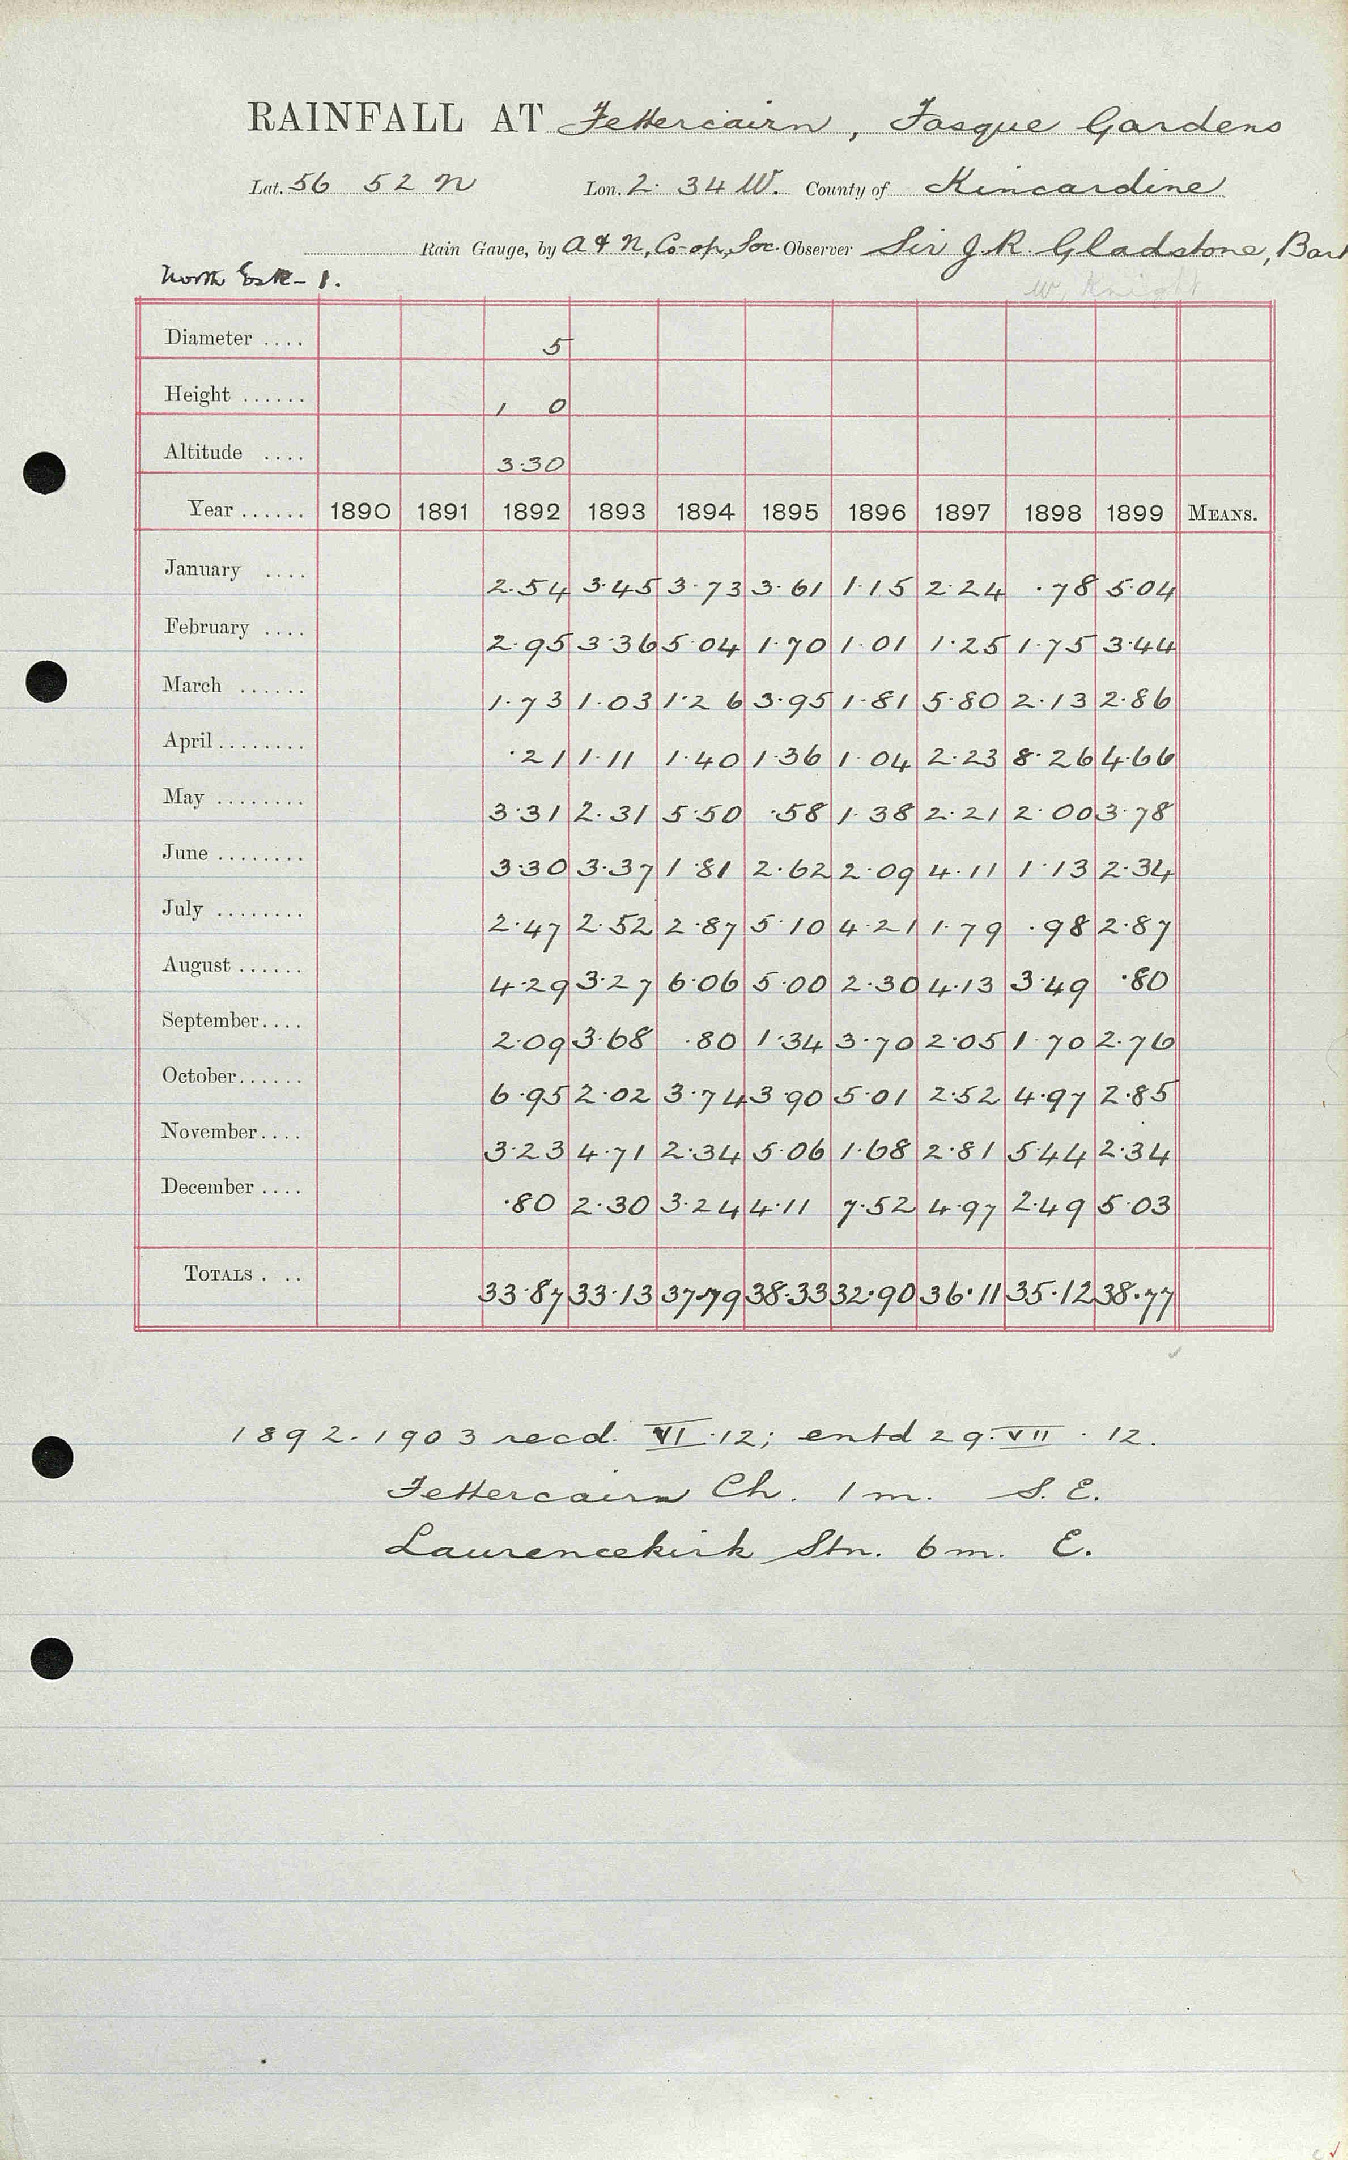 RAINFALL AT Fettercairn, Fasque Gardens
Lat. 56 52 N Lon. 2. 34 W. County of Kincardine
Rain Gauge, by A & N, Co-op, Soc. Observer Sir J. R. Gladstone, Bart
North Esk - 1. W, Knight
Diameter .... 5
Height ...... 1 0
Altitude .... 3.30
Year ...... 1890 1891 1892 1893 1894 1895 1896 1897 1898 1899 MEANS.
January .... 2.54 3.45 3.73 3.61 1.15 2.24 .78 5.04
February .... 2.95 3.36 5.04 1.70 1.01 1.25 1.75 3.44
March ...... 1.73 1.03 1.26 3.95 1.81 5.80 2.13 2.86
April ........ .21 1.11 1.40 1.36 1.04 2.23 8.26 4.66
May ........ 3.31 2.31 5.50 .58 1.38 2.21 2.00 3.78
June ........ 3.30 3.37 1.81 2.62 2.09 4.11 1.13 2.34
July ........ 2.47 2.52 2.87 5.10 4.21 1.79 .98 2.87
August ...... 4.29 3.27 6.06 5.00 2.30 4.13 3.49 .80
September .... 2.09 3.68 .80 1.34 3.70 2.05 1.70 2.76
October ...... 6.95 2.02 3.74 3.90 5.01 2.52 4.97 2.85
November .... 3.23 4.71 2.34 5.06 1.68 2.81 5.44 2.34
December .... .80 2.30 3.24 4.11 7.52 4.97 2.49 5.03
TOTALS . .. 33.87 33.13 37.79 38.33 32.90 36.11 35.12 38.77
1892-1903 recd. VI.12; entd 29.VII.12.
Fettercairn Ch. 1 m. S. E.
Laurencekirk Stn. 6 m. E.